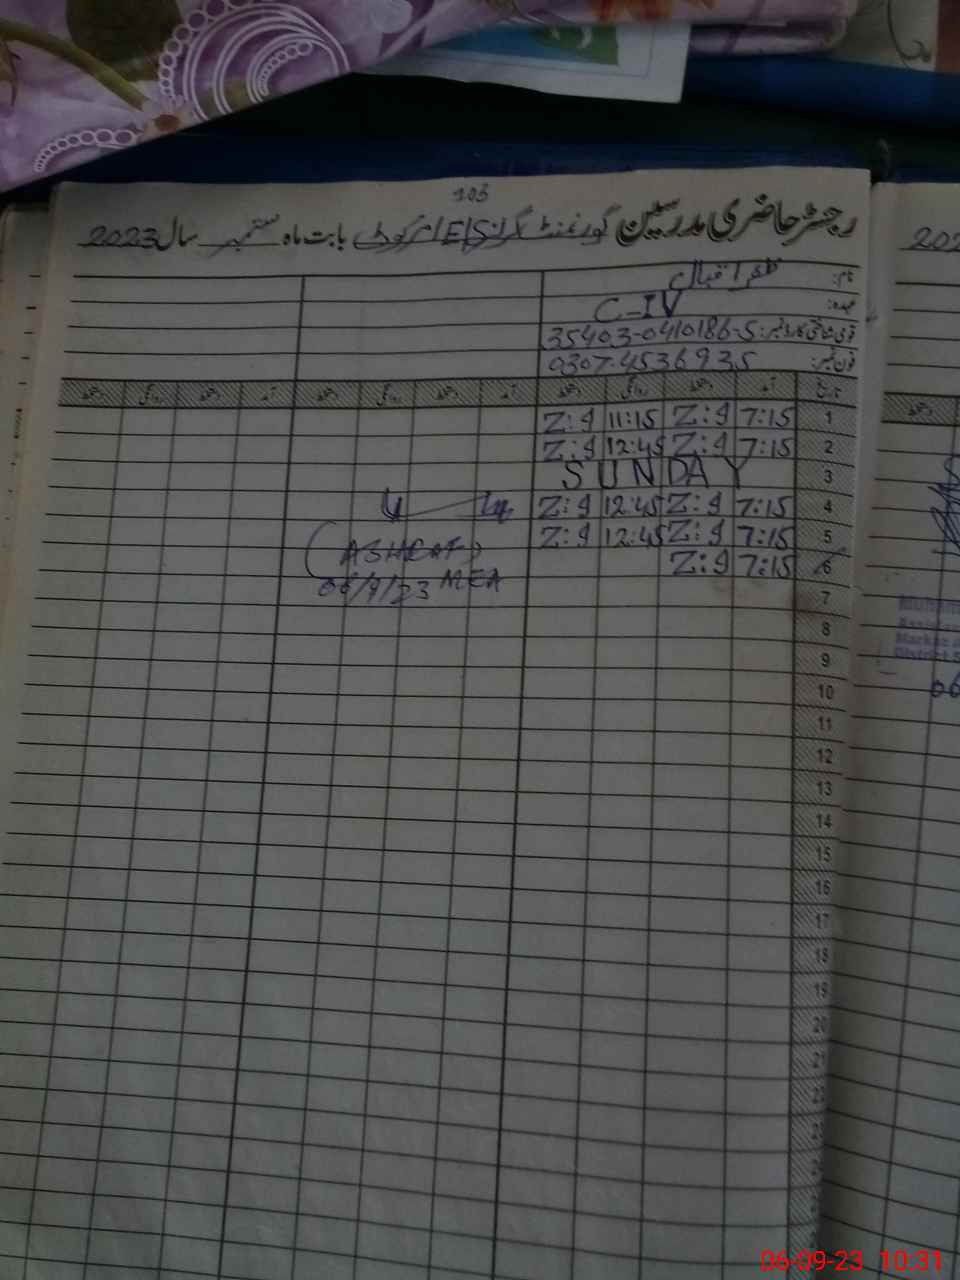 103
رجسٹر حاضری مدرسین گورنمنٹ گرلز E/S امرکوٹ بابت ماہ ستمبر سال 2023
نام: ظفر اقبال
عہدہ: C-IV
قومی شناختی کارڈ نمبر: 35403-0410186-5
فون نمبر: 0307-4536935
تاریخ آمد دستخط روانگی دستخط آمد دستخط روانگی دستخط آمد دستخط روانگی دستخط
1 7:15 Z:9 11:15 Z:9
2 7:15 Z:9 12:45 Z:9
3 SUNDAY
4 7:15 Z:9 12:45 Z:9
5 7:15 Z:9 12:45 Z:9
6 7:15 Z:9
(ASHRAF)
MEA
06/9/23
7
8
9
10
11
12
13
14
15
16
17
18
19
20
21
22
23
202
دستخط
Muham
Assista
Markaz
District S
06
06-09-23 10:31